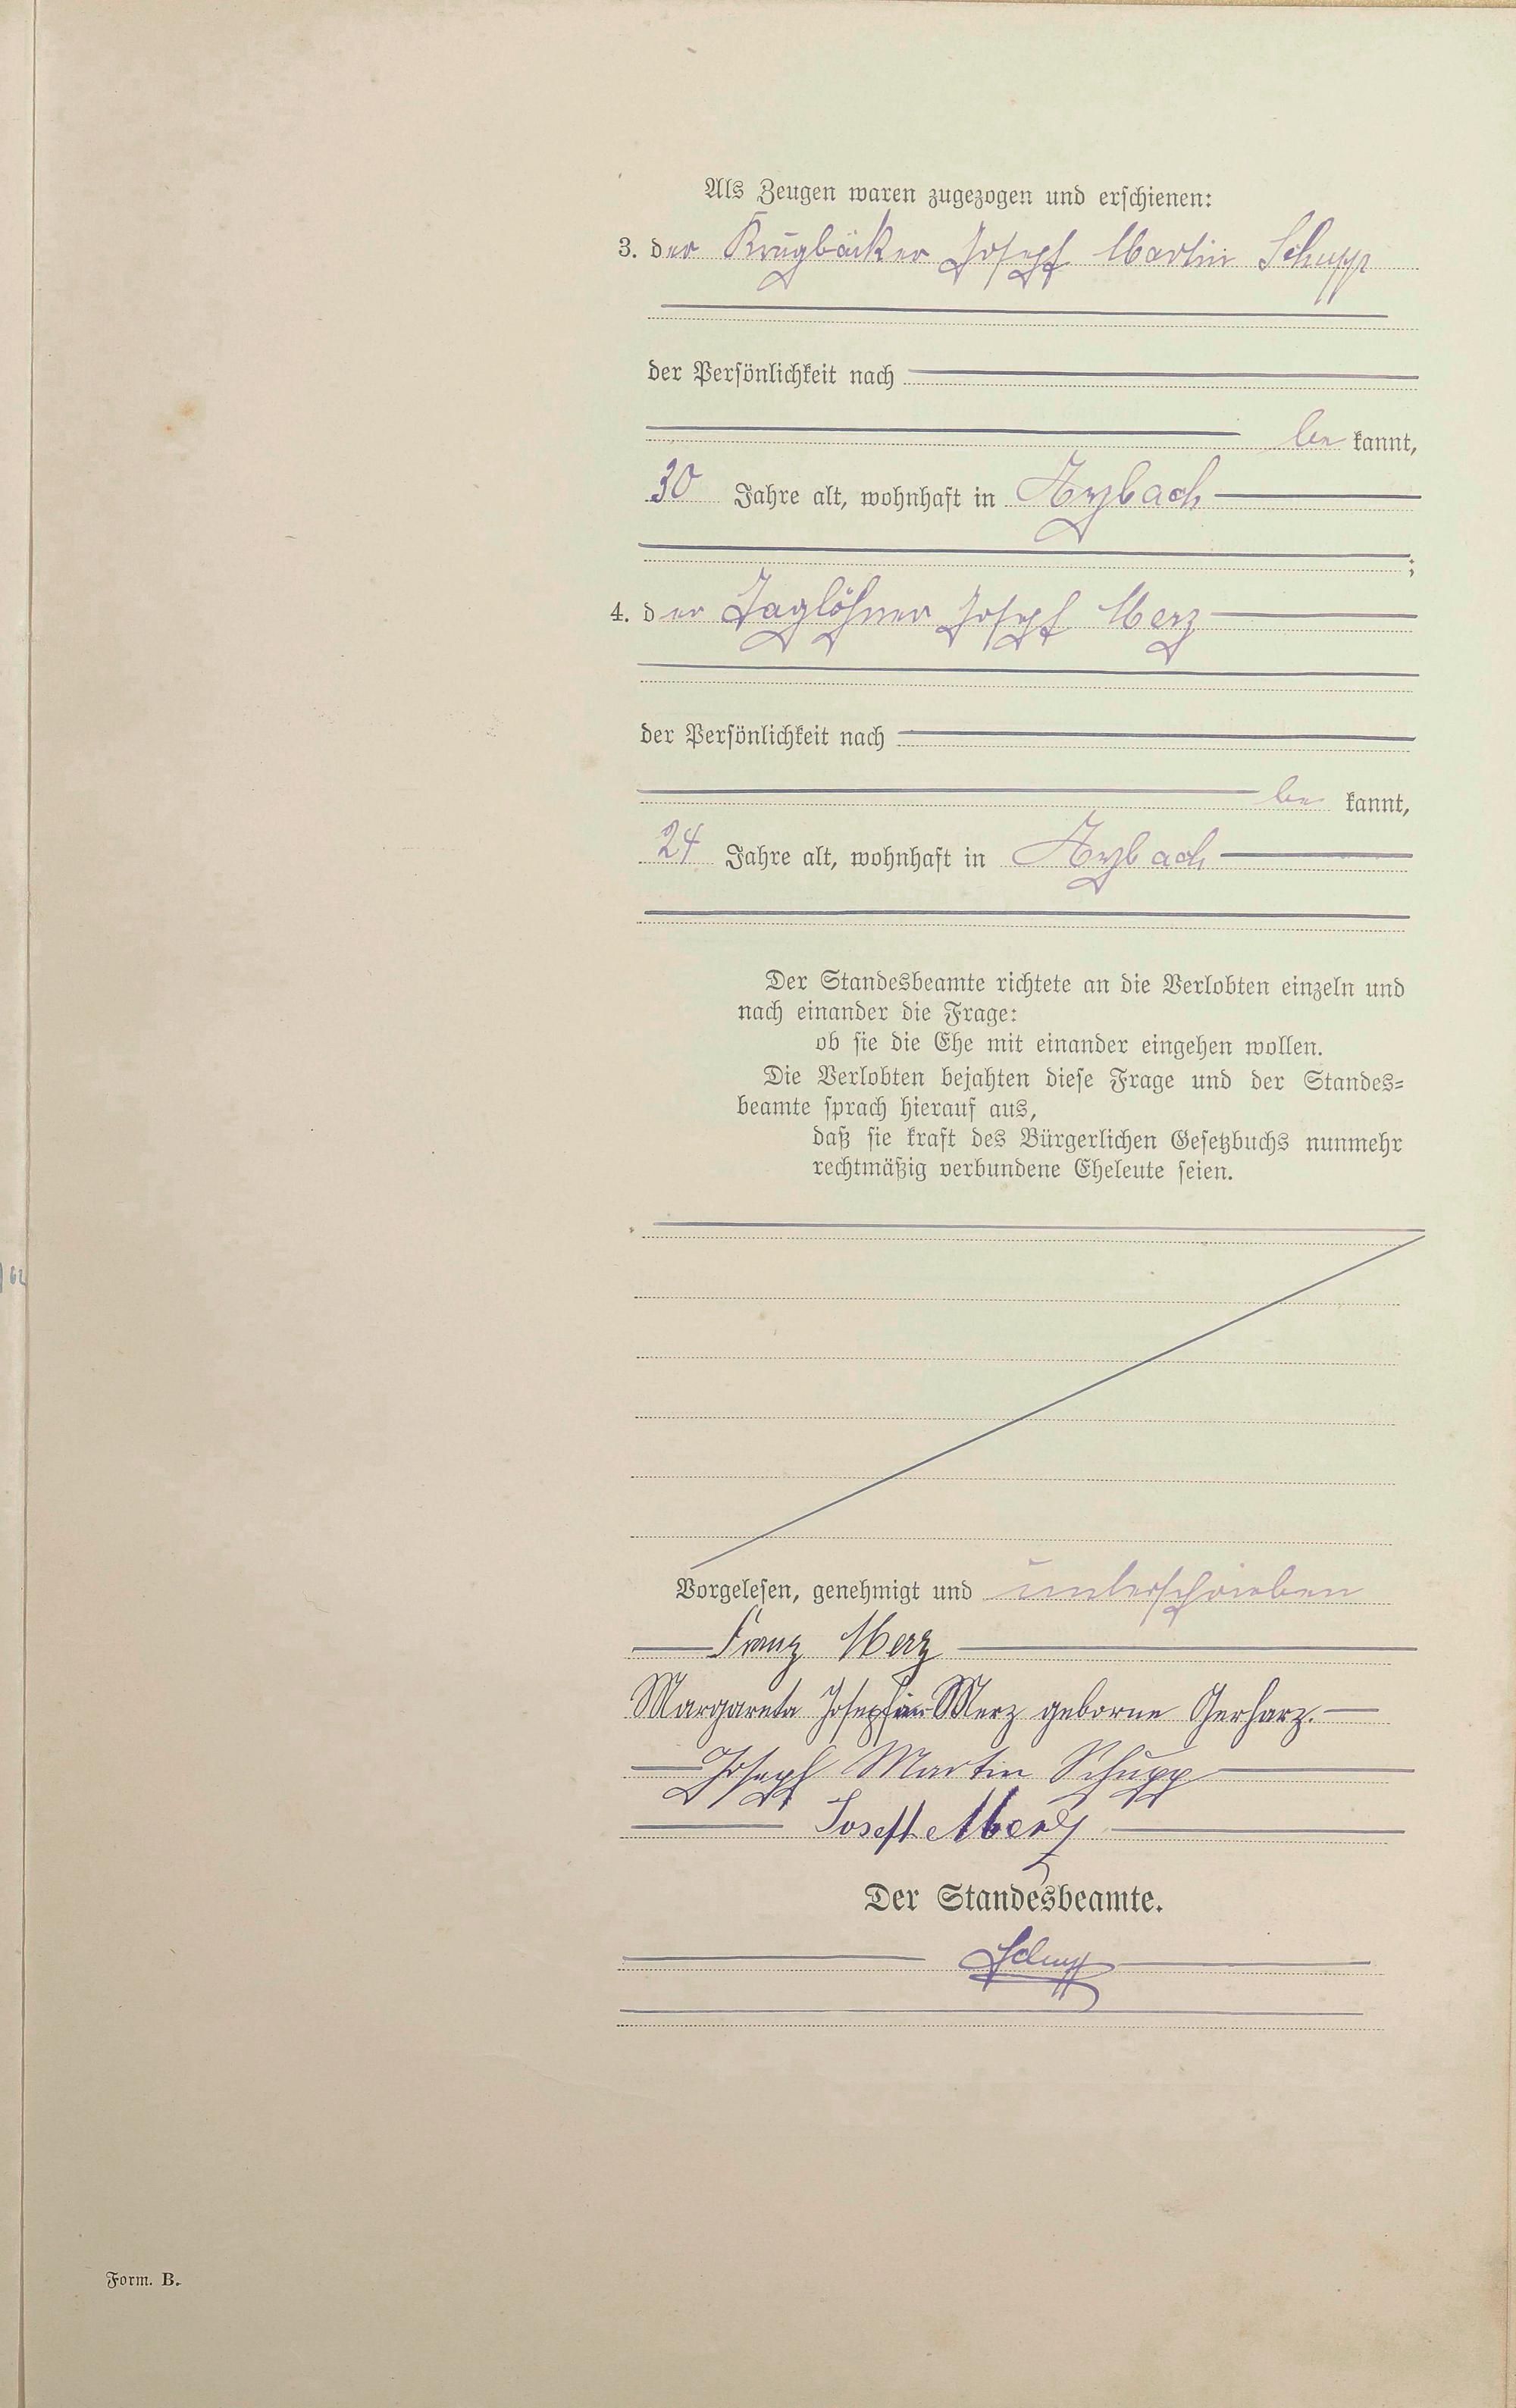 Als Zeugen waren zugezogen und erschienen:
3. der Krugbäcker Joseph Martin Schupp
der Persönlichkeit nach
be kannt,
30 Jahre alt, wohnhaft in Arzbach
;
4. der Taglöhner Joseph Merz
der Persönlichkeit nach
be kannt,
24 Jahre alt, wohnhaft in Arzbach
Der Standesbeamte richtete an die Verlobten einzeln und
nach einander die Frage:
ob sie die Ehe mit einander eingehen wollen.
Die Verlobten bejahten diese Frage und der Standes=
beamte sprach hierauf aus,
daß sie kraft des Bürgerlichen Gesetzbuchs nunmehr
rechtmäßig verbundene Eheleute seien.
Vorgelesen, genehmigt und unterschrieben
Franz Merz
Margareta Josephine Merz geborne Gerharz.
Joseph Martin Schupp
Joseph Merz
Der Standesbeamte.
Schupp
Form. B.